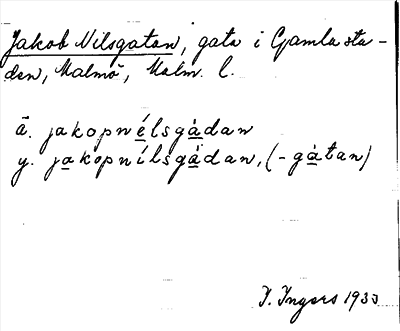 Jakob Nilsgatan, gata i Gamla sta-
den, Malmö, Malm. l.
ä. jakopnélsgàdan
y. jakopnílsgàdan, (-gàtan)
I. Ingers 1933